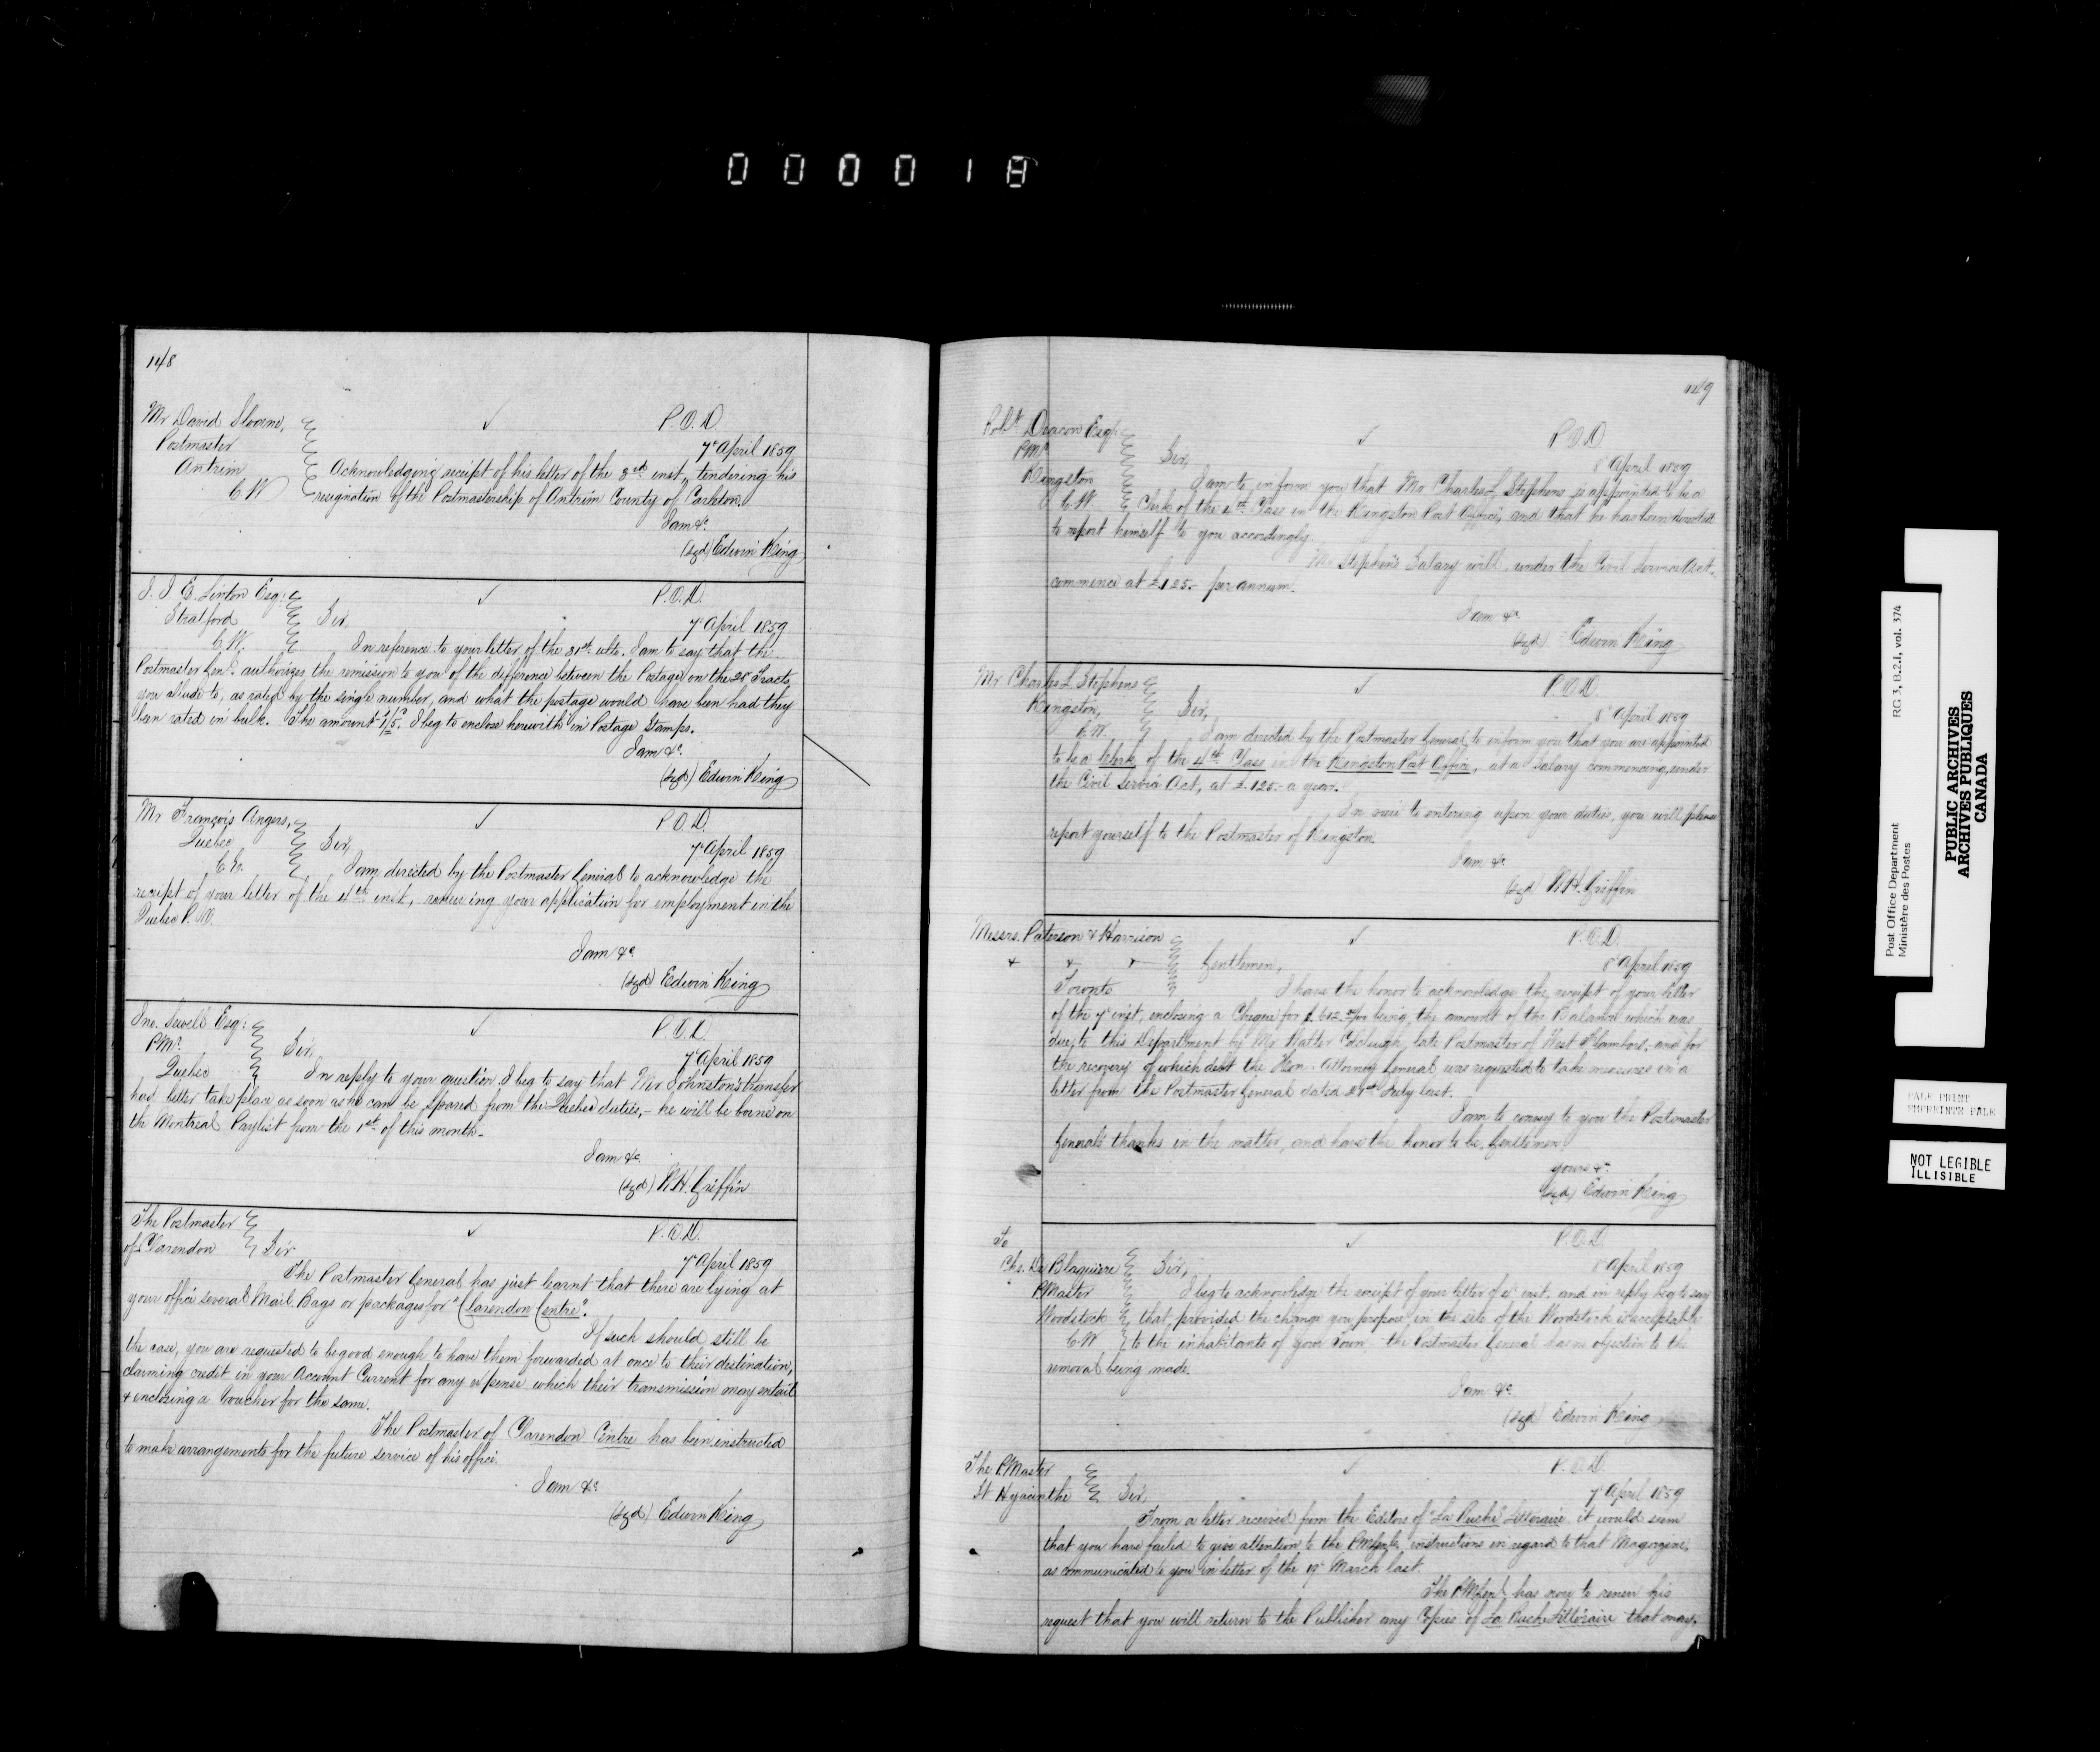 000018
148
Mr David Sloane,
Postmaster
Antrim
C.W
P.O.D
7th April 1859
Acknowledging receipt of his letter of the 3rd inst, tendering his
resignation of the Postmastership of Antrim County of Carleton.
I am &c.
(sgd) Edwin King
J. J. E. Linton Esq:
Stratford
C.W.
P.O.D.
7th April 1859
Sir,
In reference to your letter of the 31st ulto. I am to say that the
Postmaster Genl. authorizes the remission to you of the difference between the Postage on the 28 Tracts
you allude to, as rated by the single number, and what the postage would have been had they
been rated in bulk. The amount 1/5. I beg to enclose herewith in Postage Stamps.
I am &c.
(sgd) Edwin King
Mr François Angers,
Quebec
C.E.
P.O.D.
7th April 1859
Sir,
I am directed by the Postmaster General to acknowledge the
receipt of your letter of the 4th inst, renewing your application for employment in the
Quebec P.O.
I am &c
(sgd) Edwin King
Jno. Sewell Esq:
P.Mr.
Quebec
P.O.D.
7th April 1859
Sir,
In reply to your question I beg to say that Mr Johnston's transfer
had better take place as soon as he can be spared from the Quebec duties, - he will be borne on
the Montreal Paylist from the 1st of this month.
I am &c.
(sgd) W.H. Griffin
The Postmaster
of Clarendon
P.O.D.
7th April 1859
Sir
The Postmaster General has just learnt that there are lying at
your office several Mail Bags or packages for "Clarendon Centre".
If such should still be
the case, you are requested to be good enough to have them forwarded at once to their destination,
claiming credit in your Account Current for any expense which their transmission may entail
& enclosing a Voucher for the same.
The Postmaster of Clarendon Centre has been instructed
to make arrangements for the future service of his office.
I am &c
(sgd) Edwin King
149
Robt. Deacon Esqr
P.Mr.
Kingston
C.W.
P.O.D
8th April 1859
Sir,
I am to inform you that Mr Charles L Stephens is appointed to be a
Clerk of the 4th Class in the Kingston Post Office, and that he has been directed
to report himself to you accordingly.
Mr Stephen's Salary will, under the Civil Service Act,
commence at £125.- per annum.
I am &c
(sgd) Edwin King
Mr Charles L Stephens
Kingston,
C.W.
P.O.D.
8th April 1859
Sir,
I am directed by the Postmaster General, to inform you that you are appointed
to be a Clerk of the 4th Class in the Kingston Post Office, at a Salary commencing, under
the Civil Service Act, at £125.- a year.
In view to entering upon your duties, you will please
report yourself to the Postmaster of Kingston.
I am &c
(sgd) W.H. Griffin
Messrs. Paterson & Harrison
Toronto
P.O.D.
8th April 1859
Gentlemen,
I have the honor to acknowledge the receipt of your letter
of the 7th inst, enclosing a Cheque for being, the amount of the Balance which was
due to this Department by Mr Colclough, late Postmaster of West Flamboro, and for
the recovery of which debt the Hon. Attorney General was requested to take measures in a
letter from the Postmaster General dated July last.
I am to convey to you the Postmaster
General's thanks in the matter, and have the honor to be, Gentlemen,
yours &c
(sgd) Edwin King
To
Chs. De Blaquiere
P.Master
Woodstock
C.W
P.O.D.
8th April 1859
Sir,
I beg to acknowledge the receipt of your letter of inst. and in reply beg to say
that, provided the change you propose, in the site of the Woodstock is acceptable
to the inhabitants of your Town, - the Postmaster General has no objection to the
removal being made.
I am &c.
(sgd) Edwin King
The P.Master
St Hyacinthe
P.O.D.
7th April 1859
Sir,
From a letter received from the Editors of "La Ruche Littéraire, it would seem
that you have failed to give attention to the P.M.Genl's instructions in regard to that Magazine,
as communicated to you in letter of the 19th March last.
The P.M.Genl. has now to renew his
request that you will return to the Publisher any Copies of La Ruche Littéraire that may,
Post Office Department
Ministère des Postes
RG 3, B.2.1, vol. 374
PUBLIC ARCHIVES
ARCHIVES PUBLIQUES
CANADA
PALE PRINT
EMPREINTE PALE
NOT LEGIBLE
ILLISIBLE